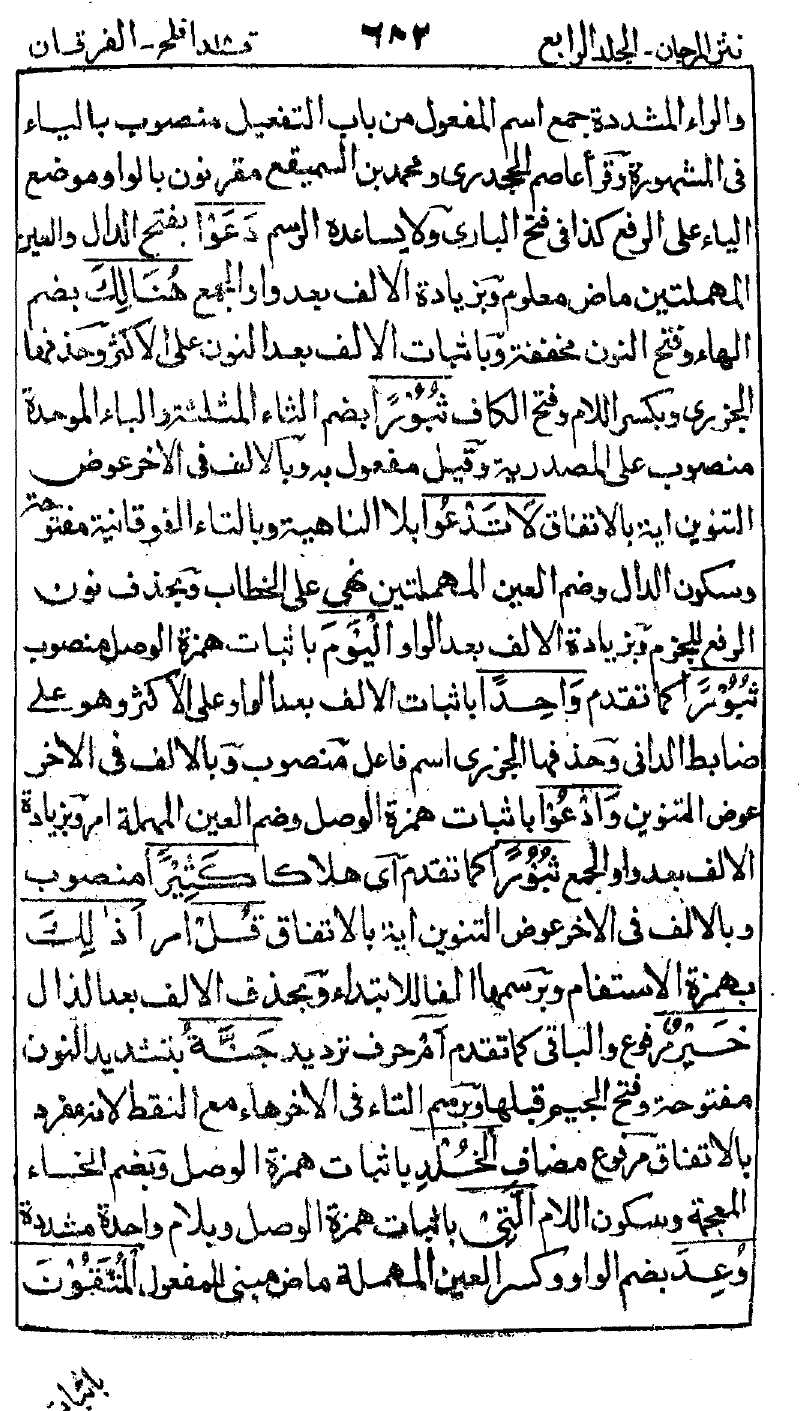 نثر المرجان - الجلد الرابع ٦٨٢ قد افلح - الفرقان
والراء المشددة جمع اسم المفعول من باب التفعيل منصوب بالياء
فى المشهورة وقرأ عاصم الجحدرى ومحمد بن السميقع مقرنون بالواو موضع
الياء على الرفع كذا فى فتح البارى ولا يساعدة الرسم دَعَوْا بفتح الدال والعين
المهملتين ماض معلوم وبزيادة الالف بعد واو الجمع هُنَالِكَ بضم
الهاء وفتح النون مخففة وباثبات الالف بعد النون على الاكثر وحذفها
الجزرى وبكسر اللام وفتح الكاف ثُبُوْرًا بضم الثاء المثلثة والباء الموحدة
منصوب على المصدرية وقيل مفعول به وبالالف فى الاخر عوض
التنوين اية بالاتفاق لَا تَدْعُوا بلا الناهية وبالتاء الفوقانية مفتوحة
وسكون الدال وضم العين المهملتين نهى على الخطاب وبحذف نون
الرفع للجزم وبزيادة الالف بعد الواو الْيَوْمَ باثبات همزة الوصل منصوب
ثُبُوْرًا كما تقدم وَاحِدًا باثبات الالف بعد الواو على الاكثر وهو على
ضابط الدانى وحذفها الجزرى اسم فاعل منصوب وبالالف فى الاخر
عوض التنوين وَادْعُوْا باثبات همزة الوصل وضم العين المهملة امر وبزيادة
الالف بعد واو الجمع ثُبُوْرًا كما تقدم اى هلاكا كَثِيْرًا منصوب
وبالالف فى الاخر عوض التنوين اية بالاتفاق قُلْ امر اَذٰلِكَ
بهمزة الاستفهام وبرسمها الفا للابتداء وبحذف الالف بعد الذال
خَيْرٌ مرفوع والباقى كما تقدم اَمْ حرف ترديد جَنَّةُ بتشديد النون
مفتوحة وفتح الجيم قبلها وبرسم التاء فى الاخر هاء مع النقط لانه مفرد
بالاتفاق مرفوع مضاف الْخُلْدِ باثبات همزة الوصل وبضم الخاء
المعجمة وسكون اللام الَّتِىْ باثبات همزة الوصل وبلام واحدة مشددة
وُعِدَ بضم الواو وكسر العين المهملة ماض مبنى للمفعول الْمُتَّقُوْنَ
باثبات